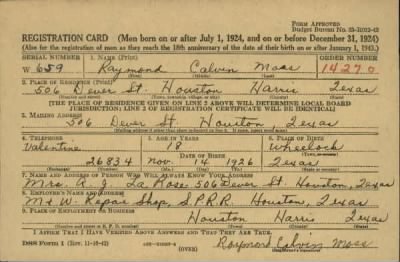 FORM APPROVED
Budget Bureau No. 33-R012-42
REGISTRATION CARD (Men born on or after July 1, 1924, and on or before December 31, 1924)
(Also for the registration of men as they reach the 18th anniversary of the date of their birth on or after January 1, 1943.)
SERIAL NUMBER 1. NAME (Print) ORDER NUMBER
W 659 Raymond Calvin Moss 14270
(First) (Middle) (Last)
2. PLACE OF RESIDENCE (Print)
506 Dever St. Houston Harris Texas
(Number and street) (Town, township, village, or city) (County) (State)
[THE PLACE OF RESIDENCE GIVEN ON LINE 2 ABOVE WILL DETERMINE LOCAL BOARD
JURISDICTION; LINE 2 OF REGISTRATION CERTIFICATE WILL BE IDENTICAL]
3. MAILING ADDRESS
506 Dever St. Houston Texas
4. TELEPHONE 5. AGE IN YEARS 6. PLACE OF BIRTH
Valentine 18 Wheelock
DATE OF BIRTH
26834 Nov. 14 1926 Texas
7. NAME AND ADDRESS OF PERSON WHO WILL ALWAYS KNOW YOUR ADDRESS
Mrs. A. J. La Rose 506 Dever St. Houston, Texas
8. EMPLOYER'S NAME AND ADDRESS
M + W Repair Shop, S.P.R.R. Houston, Texas
9. PLACE OF EMPLOYMENT OR BUSINESS
Houston Harris Texas
I AFFIRM THAT I HAVE VERIFIED ABOVE ANSWERS AND THAT THEY ARE TRUE.
DSS Form 1 (Rev. 11-16-42) (OVER) Raymond Calvin Moss